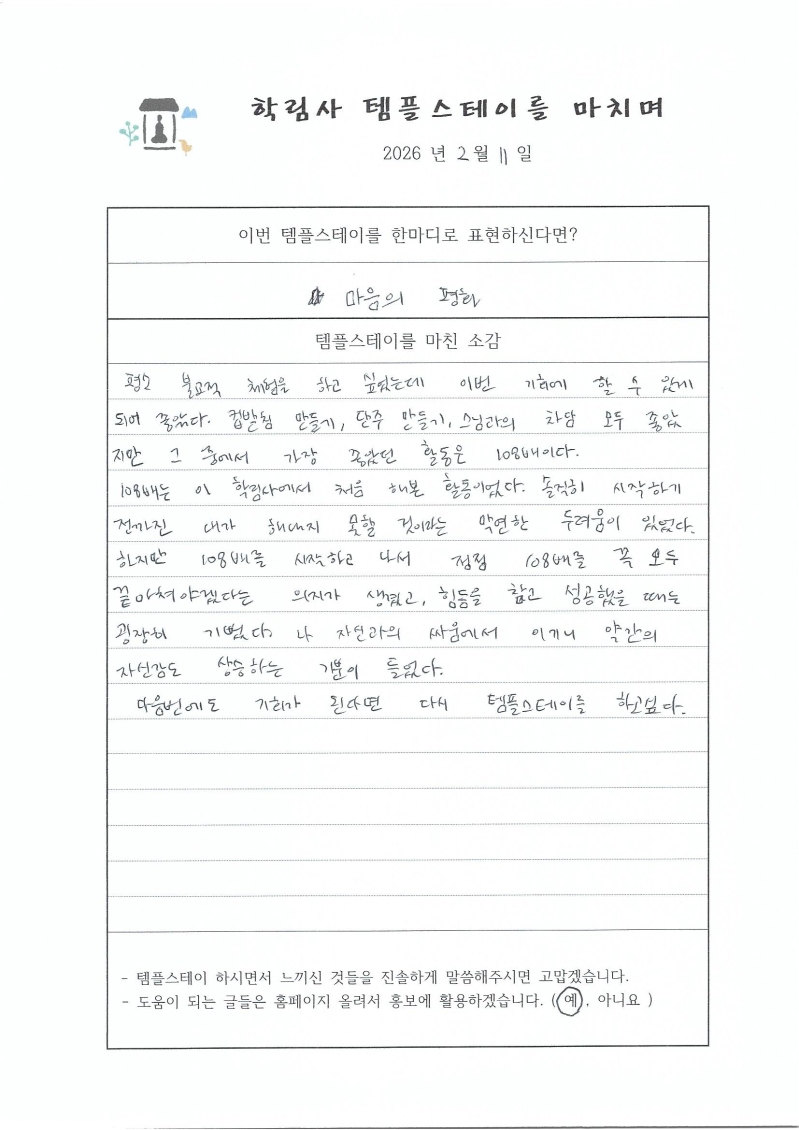 학림사 템플스테이를 마치며
2026 년 2월 11 일
이번 템플스테이를 한마디로 표현하신다면?
마음의 평화
템플스테이를 마친 소감
평소 불교적 체험을 하고 싶었는데 이번 기회에 할 수 있게
되어 좋았다. 컵받침 만들기, 단주 만들기, 스님과의 차담 모두 좋았
지만 그 중에서 가장 좋았던 활동은 108배이다.
108배는 이 학림사에서 처음 해본 활동이었다. 솔직히 시작하기
전까진 내가 해내지 못할 것이라는 막연한 두려움이 있었다.
하지만 108배를 시작하고 나서 점점 108배를 꼭 모두
끝마쳐야겠다는 의지가 생겼고, 힘듦을 참고 성공했을 때는
굉장히 기뻤다. 나 자신과의 싸움에서 이기니 약간의
자신감도 상승하는 기분이 들었다.
다음번에도 기회가 된다면 다시 템플스테이를 하고싶다.
- 템플스테이 하시면서 느끼신 것들을 진솔하게 말씀해주시면 고맙겠습니다.
- 도움이 되는 글들은 홈페이지 올려서 홍보에 활용하겠습니다. ( 예 , 아니요 )